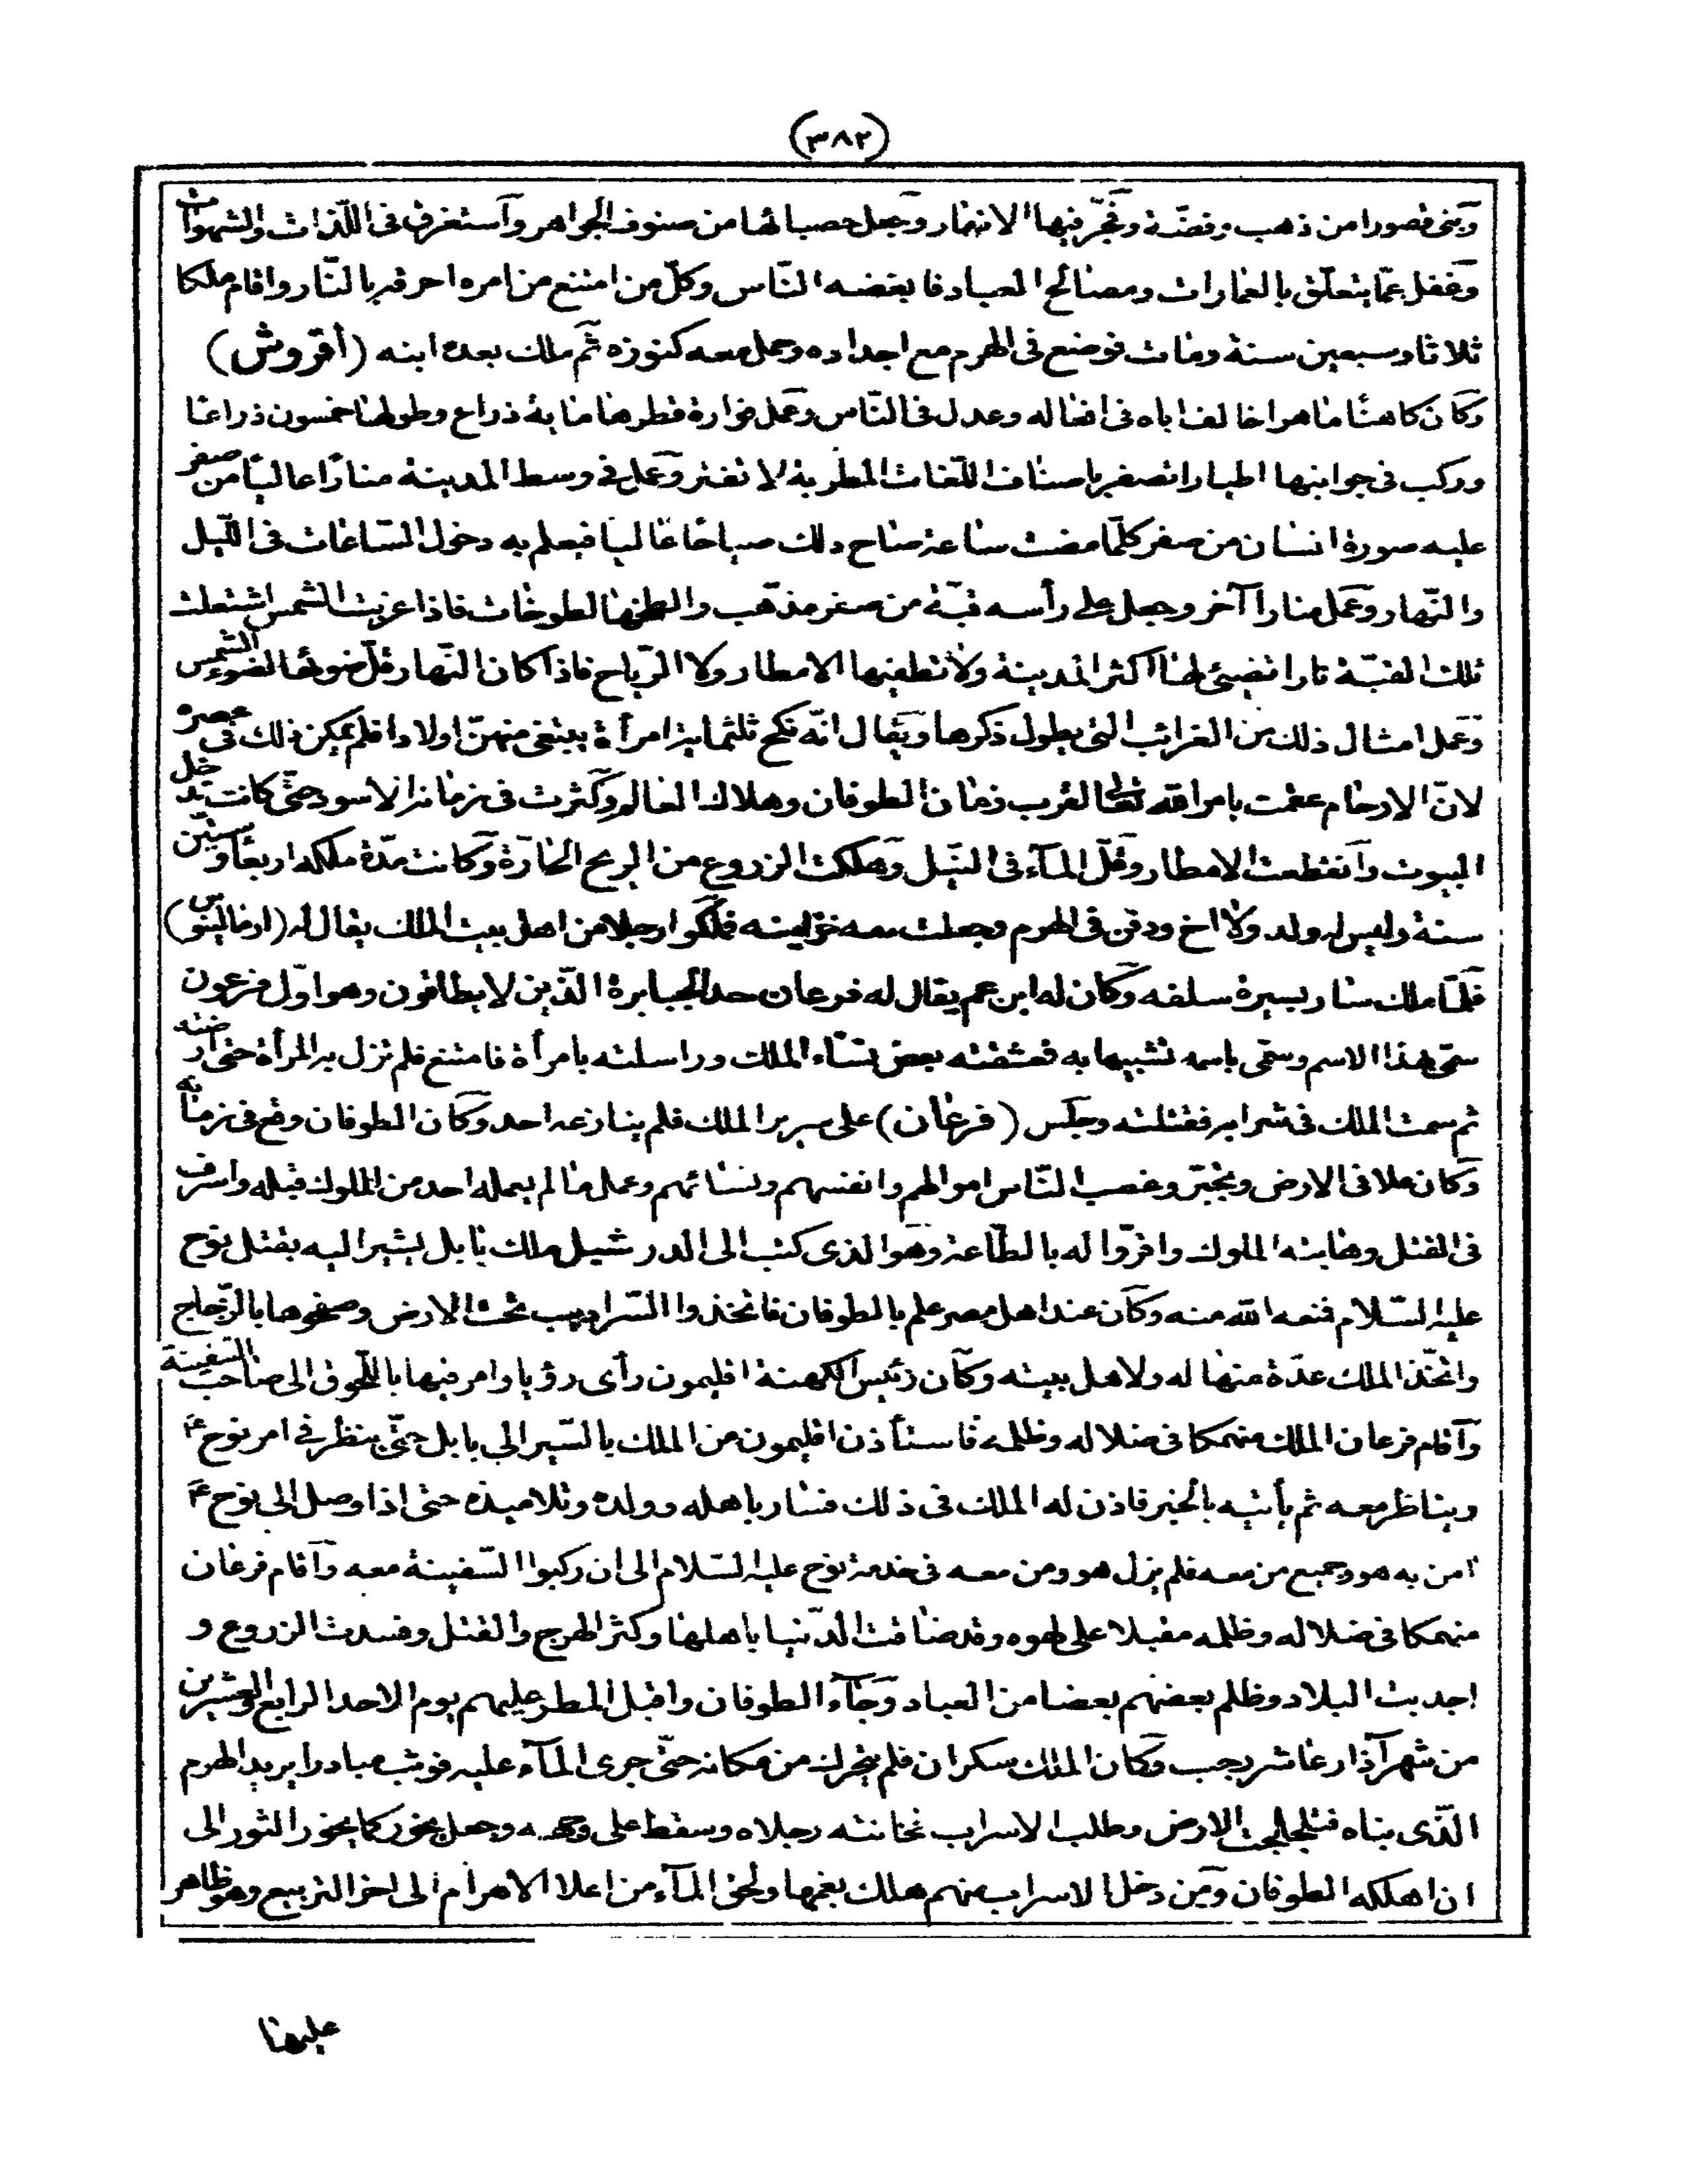 (٣٨٢)
وبنى قصورا من ذهب وفضّة وفجّر فيها الانهار وجعل حصبائها من صنوف الجواهر واستغرق فى اللّذات والشهوات
وغفل عمّا يتعلّق بالعمارات ومصالح العباد فابغضه النّاس وكلّ من امتنع من امره احرقه بالنّار واقام ملكا
ثلاثا وسبعين سنة ومات فوضع فى الهرم مع اجداده وحمل معه كنوزه ثمّ ملك بعده ابنه (أقروش)
وكان كاهنًا ماهرا خالف اباه فى افعاله وعدل فى النّاس وعمل فوارة قطرها ماية ذراع وطولها خمسون ذراعًا
وركب فى جوانبها اطيارا تصفر باصناف اللّغات المطربة لا تفتر وعمل فى وسط المدينة منارًا عاليًا من صفر
عليه صورة انسان من صفر كلّما مضت ساعة صاح ذلك صياحًا عاليًا فيعلم به دخول السّاعات فى اللّيل
والنّهار وعمل منارا آخر وجعل على رأسه قبّة من صفر مذهّب والطخها لطوخات فاذا غربت الشمس اشتعلت
تلك القبّة نارا تضيئ لها اكثر المدينة ولا تطفيها الامطار ولا الرّياح فاذا كان النّهار قلّ ضوئها لضوء الشمس
وعمل امثال ذلك من الغرائب التى يطول ذكرها ويقال انّه نكح ثلثماية امرأة يبتغى منهنّ اولادا فلم يمكن ذلك فى عصره
لانّ الارحام عقمت بامر الله تعالى لقرب زمان الطوفان وهلاك العالم وكثرت فى زمانه الاسود حتّى كانت تدخل
البيوت وانقطعت الامطار وقلّ المآء فى النّيل وهلكت الزروع من الريح الحارّة وكانت مدّة ملكه اربعًا وستّين
سنة وليس له ولد ولا اخ ودفن فى الهرم وجعلت معه خزاينه فملّكوا رجلا من اهل بيت الملك يقال له (ارمالينوس)
فلمّا ملك سار بسيرة سلفه وكان له ابن عم يقال له فرعان احد الجبابرة الّذين لا يطاقون وهو اوّل فرعون
سمّى هذا الاسم وسمّى باسمه تشبيها به فعشقته بعض نسآء الملك وراسلته بامرأة فامتنع فلم تزل به المرأة حتى ارضته
ثم سمت الملك فى شرابه فقتلته وجلس (فرغان) على سرير الملك فلم ينازعه احد وكان الطوفان وقع فى زمانه
وكان علا فى الارض وتجبّر وغصب النّاس اموالهم وانفسهم ونسائهم وعمل ما لم يعمله احد من الملوك قبله واسرف
فى القتل وهابته الملوك واقرّوا له بالطّاعة وهو الذى كتب الى الدرشيل ملك بابل يشير اليه بقتل نوح
عليه السّلام فمنعه الله منه وكان عند اهل مصر علم بالطوفان فاتخذوا السّراديب تحت الارض وصفحوها بالزّجاج
واتّخذ الملك عدّة منها له ولاهل بيته وكان رئيس الكهنة اقليمون رأى رؤيا وامر فيها باللّحوق الى صاحب السّفينة
وأقام فرعان الملك منهمكا فى ضلاله وظلمه فاستأذن اقليمون من الملك بالسّير الى بابل حتّى ينظر فى امر نوح ع
ويناظر معه ثم يأتيه بالخبر فاذن له الملك فى ذلك فسار باهله وولده وتلاميذه حتى اذا وصل الى نوح ع
امن به هو وجميع من معه فلم يزل هو ومن معه فى خدمة نوح عليه السّلام الى ان ركبوا السّفينة معه واقام فرغان
منهمكا فى ضلاله وظلمه مقبلا على لهوه وقد ضاقت الدّنيا باهلها وكثر الهرج والقتل وفسدت الزروع و
اجدبت البلاد وظلم بعضهم بعضا من العباد وجآء الطوفان واقبل المطر عليهم يوم الاحد الرابع والعشرين
من شهر آذار عاشر رجب وكان الملك سكران فلم يتحرك من مكانه حتّى جرى المآء عليه فوثب مبادرا يريد الهرم
الّذى بناه الارض وطلب الاسراب فخانته رجلاه وسقط على وجهه وجعل يخور كما يخور الثور الى
ان اهلكه الطوفان ومن دخل الاسراب منهم هلك بغمها ولحق المآء من اعلا الاهرام الى اخر التربيع وهو ظاهر
عليها